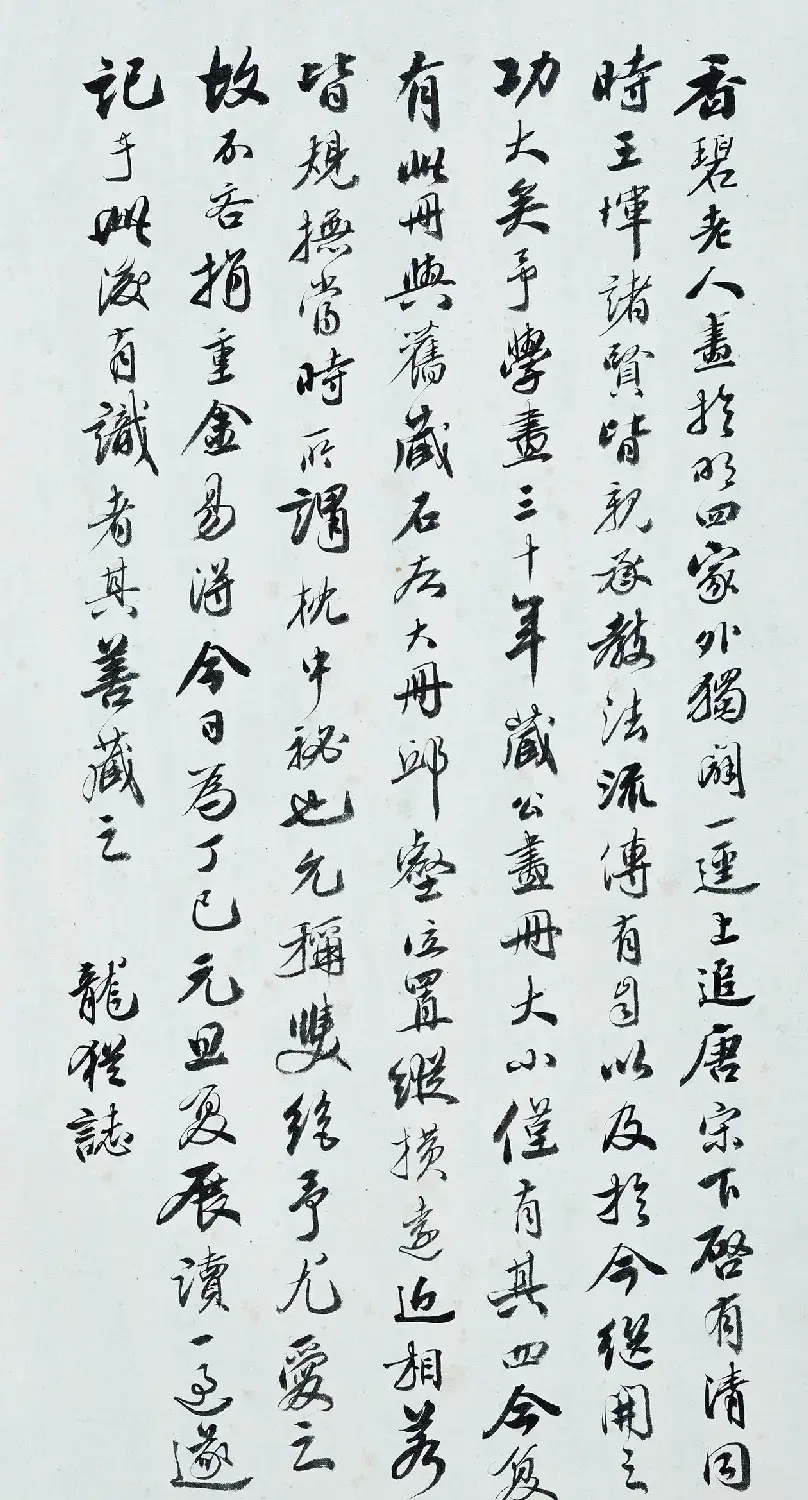 香碧老人畫於明四家外獨闢一逕上追唐宋下啓有清同
時王翬諸賢皆親承教法流傳有自以及於今繼開之
功大矣予學畫三十年藏公畫冊大小僅有其四今復
有此冊與舊藏石友大冊邱壑位置縱橫遠近相若
皆規撫當時所謂枕中祕也允稱雙絕予尤愛之
故不吝捐重金易得今日為丁巳元旦夏展讀一過遂
記于此後有識者其善藏之
龍猶誌